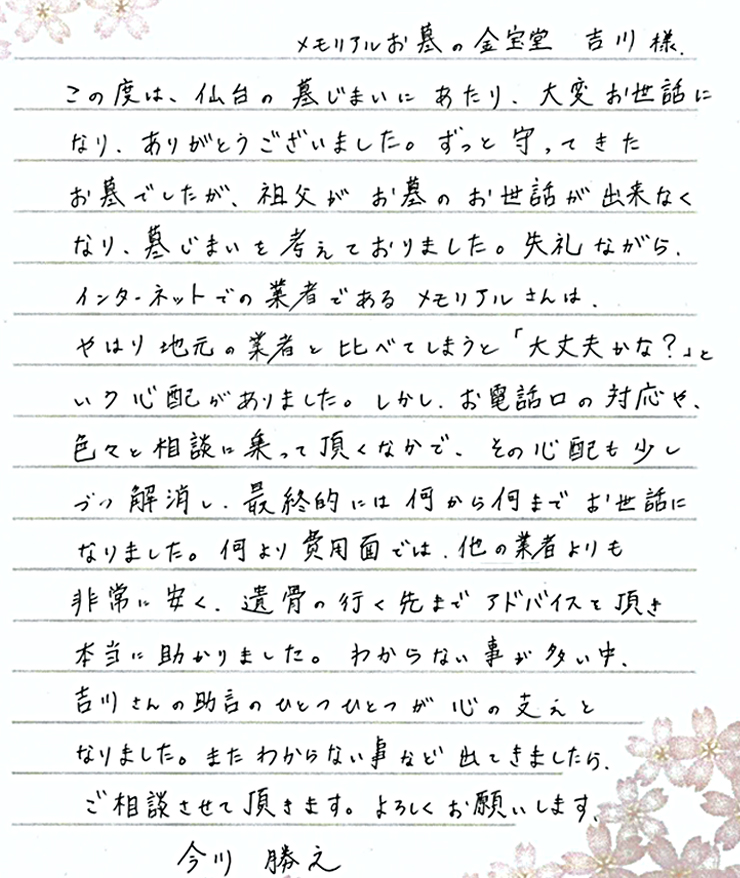 メモリアルお墓の金宝堂 吉川様.
この度は、仙台の墓じまいにあたり、大変お世話に
なり、ありがとうございました。ずっと守ってきた
お墓でしたが、祖父がお墓のお世話が出来なく
なり、墓じまいを考えておりました。失礼ながら、
インターネットでの業者であるメモリアルさんは、
やはり地元の業者と比べてしまうと「大丈夫かな?」と
いう心配がありました。しかし、お電話口の対応や、
色々と相談に乗って頂くなかで、その心配も少し
づつ解消し、最終的には何から何までお世話に
なりました。何より費用面では、他の業者よりも
非常に安く、遺骨の行く先までアドバイスを頂き
本当に助かりました。わからない事が多い中、
吉川さんの助言のひとつひとつが心の支えと
なりました。またわからない事など出てきましたら、
ご相談させて頂きます。よろしくお願いします。
今川 勝之